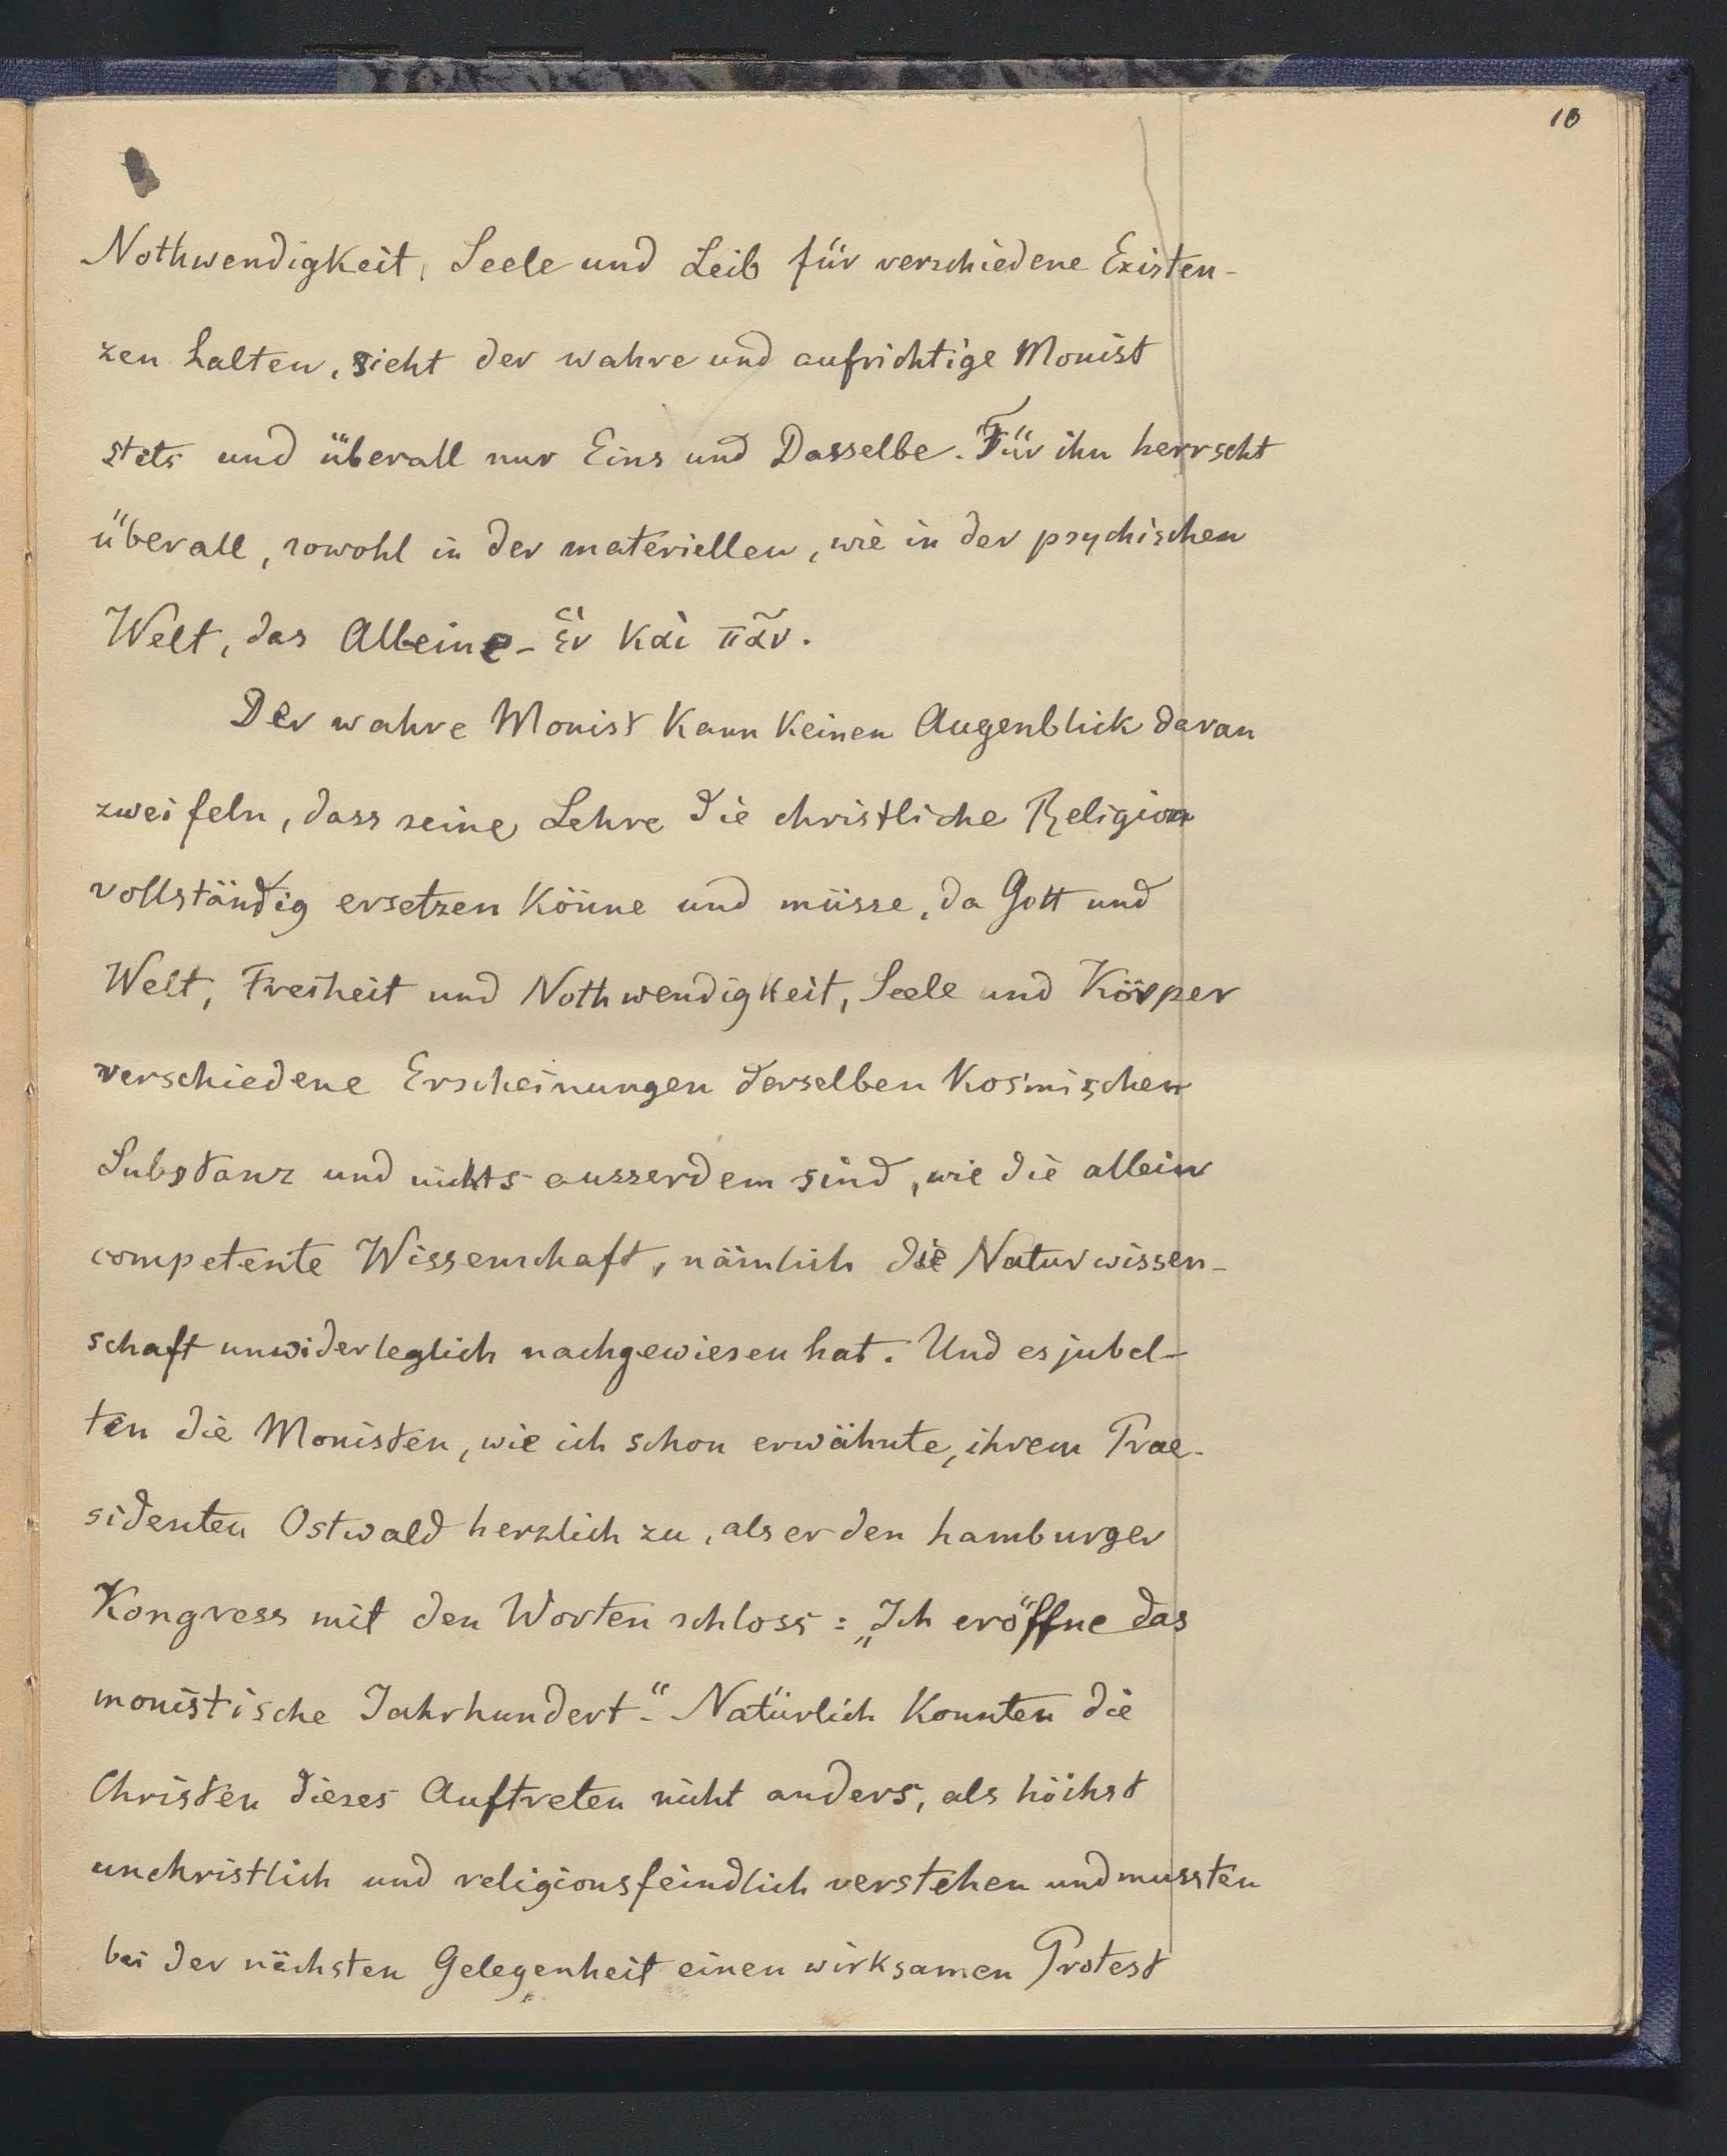 10
Nothwendigkeit, Seele und Leib für verschiedene Existen-
zen halten, sieht der wahre und aufrichtige Monist
stets und überall nur Eins und Dasselbe. Für ihn herrscht
überall, sowohl in der materiellen, wie in der psychischen
Welt, das Alleine - ἓν καὶ πᾶν.
Der wahre Monist kann keinen Augenblick daran
zweifeln, dass seine Lehre die christliche Religion
vollständig ersetzen könne und müsse, da Gott und
Welt, Freiheit und Nothwendigkeit, Seele und Körper
verschiedene Erscheinungen derselben kosmischen
Substanz und nichts ausserdem sind, wie die allein
competente Wissenschaft, nämlich die Naturwissen-
schaft unwiderleglich nachgewiesen hat. Und es jubel-
ten die Monisten, wie ich schon erwähnte, ihrem Prae-
sidenten Ostwald herzlich zu, als er den hamburger
Kongress mit den Worten schloss: „Ich eröffne das
monistische Jahrhundert.“ Natürlich konnten die
Christen dieses Auftreten nicht anders, als höchst
unchristlich und religionsfeindlich verstehen und mussten
bei der nächsten Gelegenheit einen wirksamen Protest